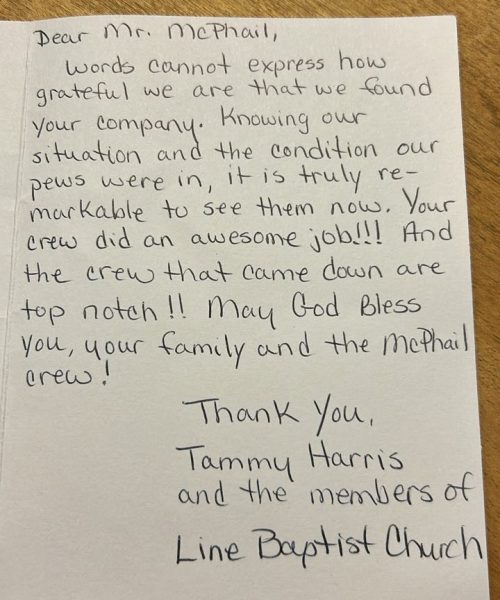 Dear Mr. McPhail,
words cannot express how
grateful we are that we found
your company. Knowing our
situation and the condition our
pews were in, it is truly re-
markable to see them now. Your
crew did an awesome job!!! And
the crew that came down are
top notch!! May God Bless
you, your family and the McPhail
crew!
Thank You,
Tammy Harris
and the members of
Line Baptist Church